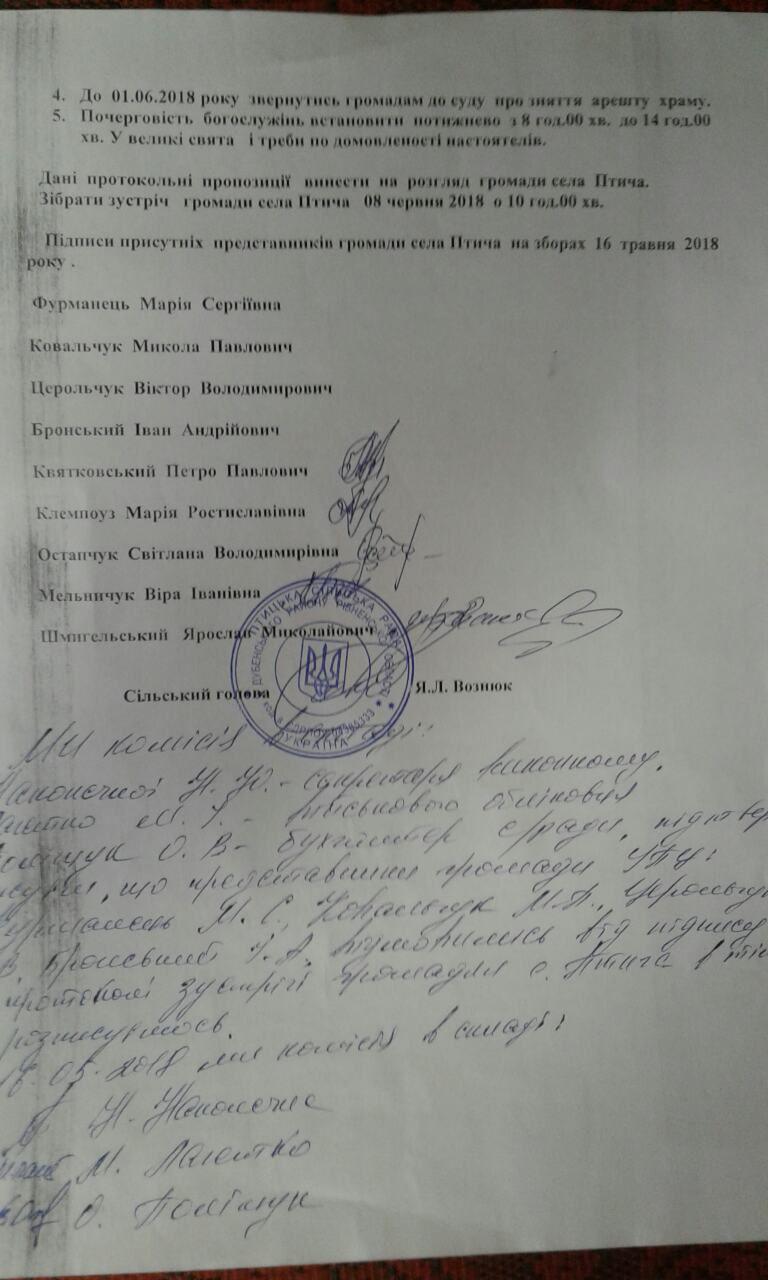 4. До 01.06.2018 року звернутись громадам до суду про зняття арешту храму.
5. Почерговість богослужінь встановити потижнево з 8 год.00 хв. до 14 год.00
хв. У великі свята і треби по домовленості настоятелів.
Дані протокольні пропозиції винести на розгляд громади села Птича.
Зібрати зустріч громади села Птича 08 червня 2018 о 10 год.00 хв.
Підписи присутніх представників громади села Птича на зборах 16 травня 2018
року .
Фурманець Марія Сергіївна
Ковальчук Микола Павлович
Церольчук Віктор Володимирович
Бронський Іван Андрійович
Квятковський Петро Павлович
Клемпоуз Марія Ростиславівна
Остапчук Світлана Володимирівна
Мельничук Віра Іванівна
Шмигельський Ярослав Миколайович
Сільський голова Я.Л. Вознюк
ПТИЦЬКА СІЛЬСЬКА РАДА
ДУБЕНСЬКОГО РАЙОНУ РІВНЕНСЬКОЇ
УКРАЇНА
Ми комісія в складі:
Наконечної Н. Ю. - секретаря виконкому,
М. - військового обліковця
О. В - бухгалтер с/ради,
що представники громади УПЦ:
М. С., Ковальчук М.П., Церольчук
Бронський І. А. відмовились від підпису
протоколі зустрічі громади с. Птича в тім
розписуємось.
05. 2018 ми комісія в складі:
Н. Наконечна
М.
О. Поліщук